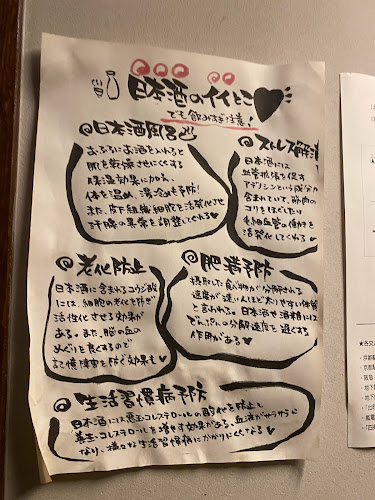 日本酒のイイとこ♥
でも飲みすぎ注意!
◎日本酒風呂
おふろにお酒を入れると
肌を乾燥させにくくする
保温効果に加え、
体を温め、湯冷めも予防!
また、皮下組織細胞を活発化させ
汗腺の異常を調整してくれる♥
◎ストレス解消
日本酒には
血管拡張を促す
アデノシンという成分が
含まれていて、筋肉の
コリをほぐしたり
毛細血管の働きを
活発化してくれる♥
◎老化防止
日本酒に含まれるコウジ酸
には、細胞の老化を防ぎ
活性化させる効果が
ある。また、脳の血の
めぐりを良くするので
記憶障害を防ぐ効果も♥
◎肥満予防
摂取した食べ物が分解される
速度が速い人ほど太りやすい体質
と言われる。日本酒や酒粕には
でんぷんの分解速度を遅くする
作用がある♥
◎生活習慣病予防
日本酒には悪玉コレステロールの酸化を防止し
善玉コレステロールを増やす効果がある、血液がサラサラに
なり、様々な生活習慣病にかかりにくくなる♥